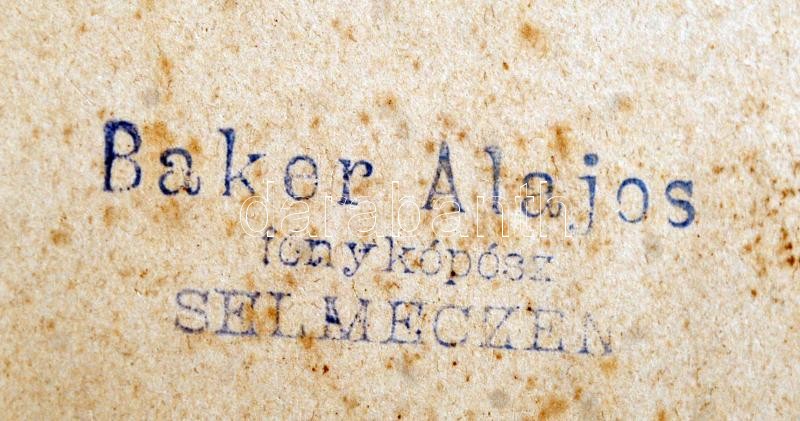 Baker Alajos
darabanth
fényképész
SELMECZEN